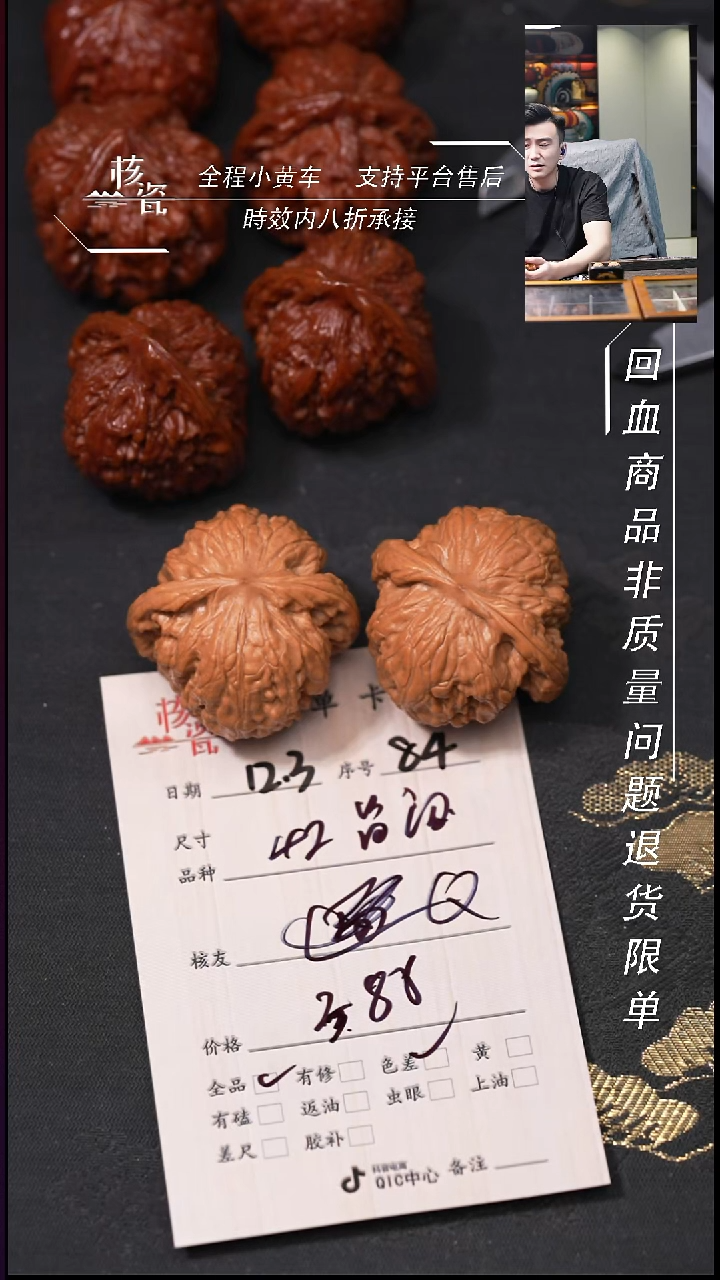 核瓷
全程小黄车 支持平台售后
時效内八折承接
回血商品非质量问题退货限单
核瓷 单卡
日期 12.3 序号 84
尺寸 42
品种
核友
价格
全品 有修 色差 黄
有磕 返油 虫眼 上油
差尺 胶补
抖音电商
QIC中心 备注